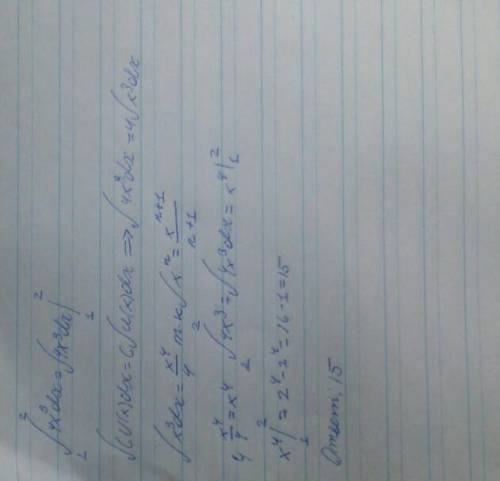 ∫₁² 4x³dx = ∫4x³dx |₁²
∫CU(x)dx = C∫U(x)dx ⇒ ∫4x³dx = 4∫x³dx
∫x³dx = x⁴/4 т.к ∫xⁿ = xⁿ⁺¹/n+1
4 x⁴/4 = x⁴ ∫₁² 4x³ = ∫4x³dx = x⁴|₁²
x⁴|₁² = 2⁴ - 1⁴ = 16 - 1 = 15
Ответ: 15